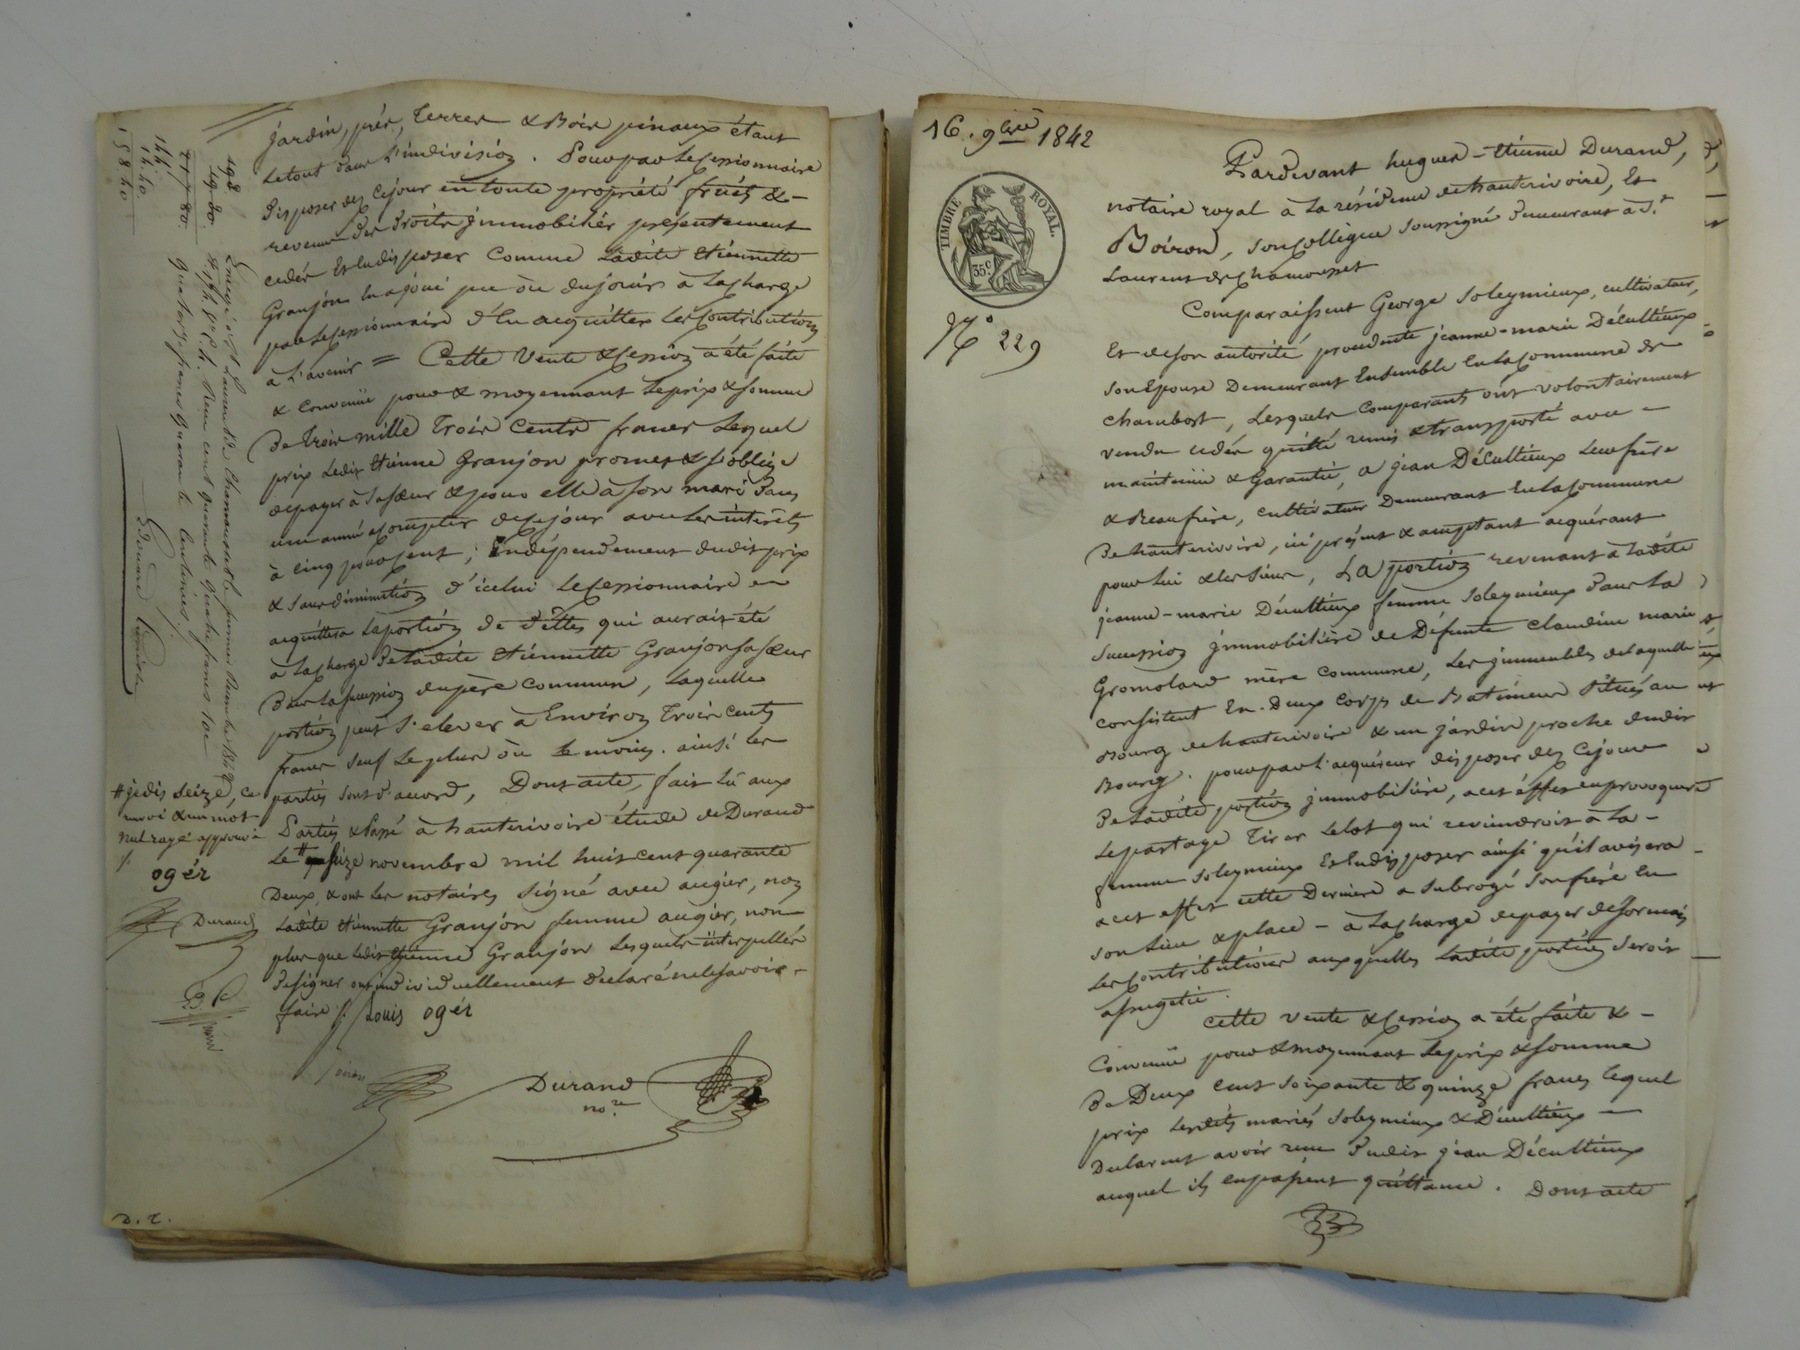 jardin, prés, terres & Bois pinaux étant
le tout dans l'indivision. Pour par le cessionnaire
disposer dez ce jour en toute propriété fruits & -
revenu des droits immobilier présentement
cedés et en disposer comme ladite étiennette
Granjon en a joui pu où du jouir à la charge
par le cessionnaire d'en acquitter les contributions
à l'avenir = Cette vente & cession a été faite
& convenüe pour & moyennant le prix & somme
de trois mille trois cents francs lequel
prix ledit étienne Granjon promet & s'oblige
de payer à sa sœur & pour elle à son mari dans
une année à compter de ce jour avec les intérêts
à cinq pour cent ; indépendement dudit prix
& sans diminution d'icelui le cessionnaire
acquittera la portion de dettes qui aurait été
à la charge de ladite étiennette Granjon sa sœur
dans la succession du père commun, laquelle
portion peut s'elever à environ trois cents
francs sauf le plus où le moins. ainsi les
parties sont d'accord, Dont acte, fait lu aux
Parties & Passé à hauterivoire étude de Durand
le # seize novembre mil huit cent quarante
Deux, & ont les notaires signé avec augier, non
ladite étiennette Granjon femme augier, non
plus que ledit étienne Granjon lesquels interpellés
de signer ont individuellement declaré ne le savoir
faire ./. Louis ogér
Durand
no.re
198
19-80.
77-80.
144.
14.40.
158 40
Enregistré à St Laurent de Chamousset le premier Décembre 1842
Reçu cent quarante quatre francs 10e
quatorze francs quarante centimes.
# je dis seize, ce
renvoi & un mot
nul rayé approuvé
./.
ogér
Durand
D. T.
16. 9bre 1842
TIMBRE ROYAL.
35c
No 229
Pardevant hugues-étienne Durand,
notaire royal à la résidence de hauterivoire, et
Boiron, son collègue soussigné demeurant à St
Laurent de chamousset
Comparaissent George Soleymieux, cultivateur,
et de son autorité procedente jeanne-marie Décultieux
son Epouse demeurant Ensemble en la commune de
chambost, lesquels comparants ont volontairement
vendu cédés quitté remis & transporté avec -
maintenüe & Garantie, a jean Décultieux leur frère
& Beaufrère, cultivateur demeurant en la commune
de hauterivoire, ici présent & acceptant acquérant
pour lui & les siens, La portion revenant à ladite
jeanne-marie Décultieux femme Soleymieux dans la
succession immobilière de Défunte claudine marie
Gromolard mère commune, les immeubles de laquelle
consistent En Deux corps de Batiment situés au
Bourg de hauterivoire & un jardin proche dudit
Bourg. pour par l'acquéreur disposer dez ce jour
de ladite portion immobilière, a cet effet en provoquer
le partage tirer le lot qui reviendroit à la -
femme Soleymieux et en disposer ainsi qu'il avisera
a cet effet cette Derniere a subrogé son frère en
son lieu & place - à la charge de payer desormais
les contributions auxquelles ladite portion seroit
assugetie.
cette vente & cession a été faite & -
Convenüe pour & moyennant le prix & somme
de Deux cent soixante & quinze francs lequel
prix lesdits mariés Soleymieux & Décultieux -
Declarent avoir reçu dudit jean Décultieux
auquel ils en passent quittance. Dont acte